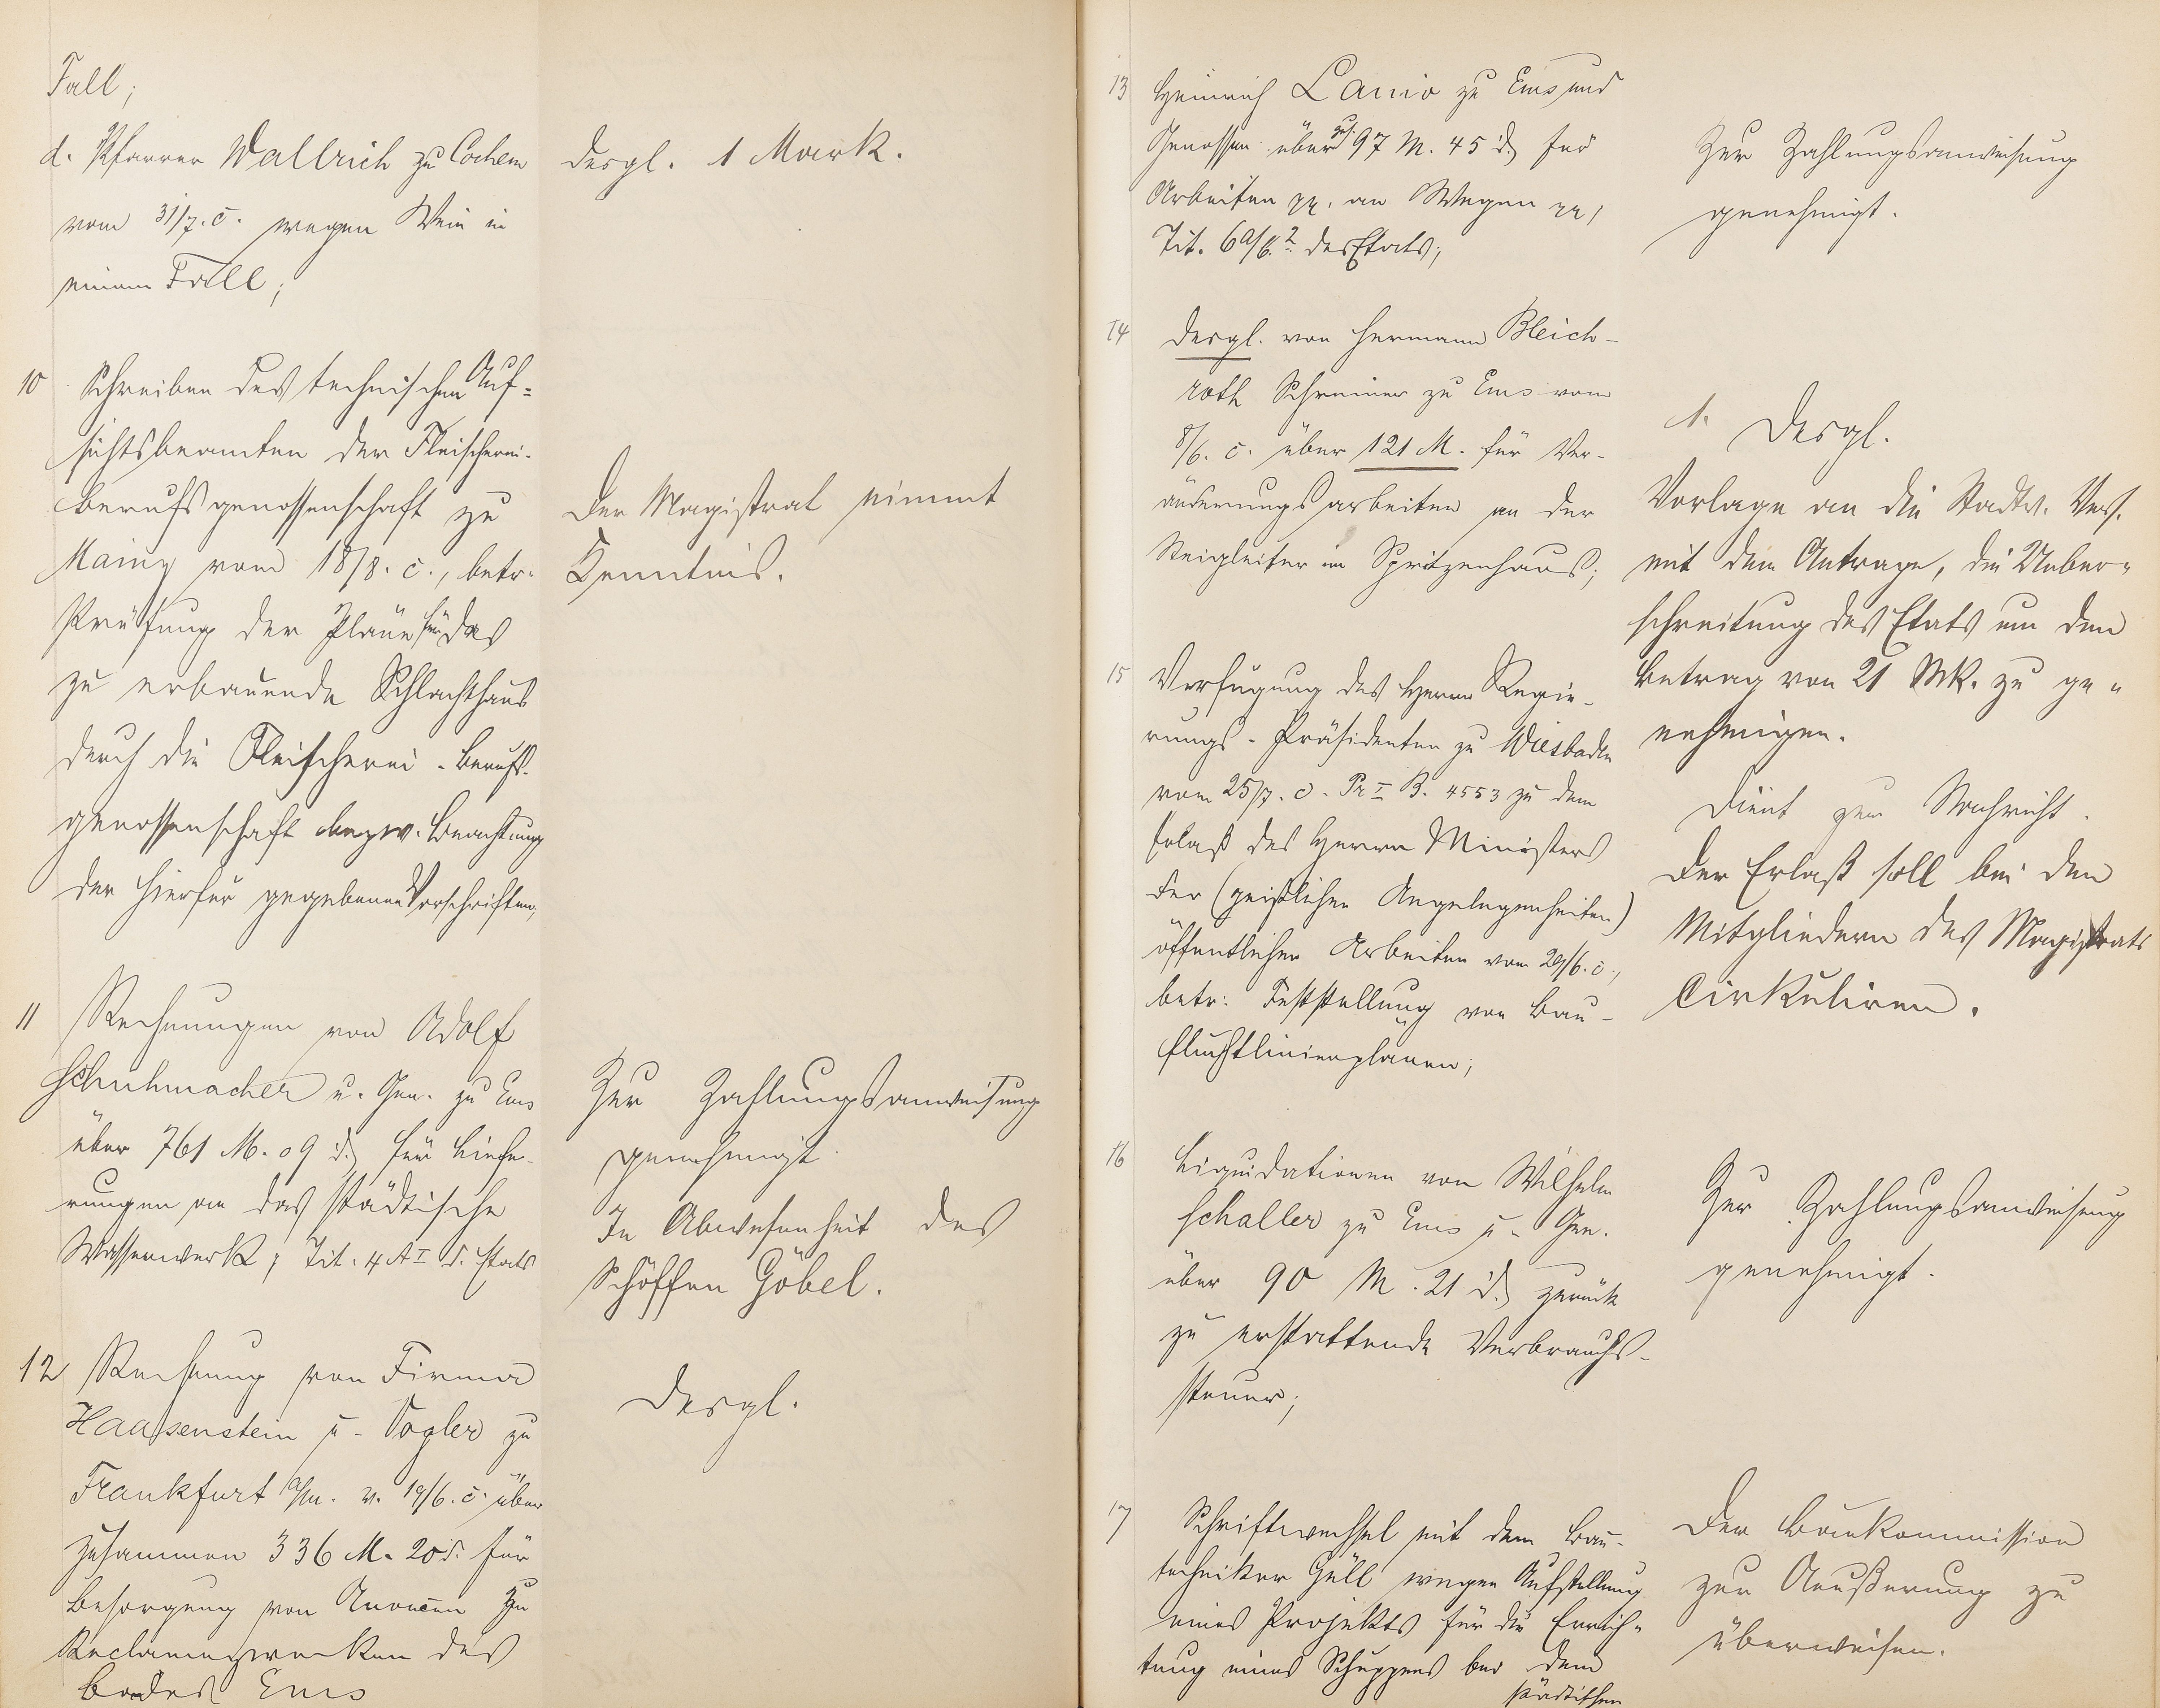 Fall;
d. Pfarrer Wallrich zu Cochem
vom 31/7. c. wegen Wein in
einem Fall;
desgl. 1 Mark.
10 Schreiben des technischen Auf-
sichtsbeamten der Fleischerei-
berufsgenossenschaft zu
Mainz vom 18/8. c., betr.
Prüfung der Pläne für das
zu erbauende Schlachthaus
durch die Fleischerei-Berufs-
genossenschaft bezw. Beachtung
der hierfür gegebenen Vorschriften;
Der Magistrat nimmt
Kenntnis.
11 Rechnungen von Adolf
Schuhmacher u. Gen. zu Ems
über 761 M. 09 d. für Liefe-
rungen an das städtische
Wasserwerk; Tit. 4 A I d. Etats
Zur Zahlungsanweisung
genehmigt.
In Abwesenheit des
Schöffen Göbel.
12 Rechnung von Firma
Haasenstein u. Vogler zu
Frankfurt a/m. v. 19/6. c. über
zusammen 336 M. 20 d. für
Besorgung von Anoncen zu
Reclamezwecken des
Bades Ems
desgl.
13 Heinrich Lanio zu Ems und
Genossen über zus. 97 M. 45 d. für
Arbeiten pp. an Wegen pp,
Tit. 6 des Etats;
Zur Zahlungsanweisung
genehmigt.
14 desgl. von Hermann Bleich-
roth Schreiner zu Ems vom
8/6. c. über 121 M. für Ver-
änderungsarbeiten an der
Steigleiter im Spritzenhaus;
1. Desgl.
Vorlage an die Stadtv. Vers.
mit dem Antrage, die Ueber-
schreitung des Etats um den
Betrag von 21 Mk. zu ge-
nehmigen.
15 Verfügung des Herrn Regie-
rungs-Präsidenten zu Wiesbaden
vom 25/7. c. Pr I B. 4553 zu dem
Erlaß des Herrn Ministers
der (geistlichen Angelegenheiten)
öffentlichen Arbeiten vom 29/6. c.,
betr. Feststellung von Bau-
fluchtlinienplänen;
Dient zur Nachricht.
Der Erlaß soll bei den
Mitgliedern des Magistrats
Cirkuliren.
16 Liquidationen von Wilhelm
Schaller zu Ems u. Gen.
über 90 M. 21 d. zurück
zu erstattende Verbrauchs-
steuer;
Zur Zahlungsanweisung
genehmigt.
17 Schriftwechsel mit dem Bau-
techniker Güll wegen Aufstellung
eines Projekts für die Errich-
tung eines Schuppens bei dem
städtischen
Der Baukommission
zur Aeußerung zu
überweisen.